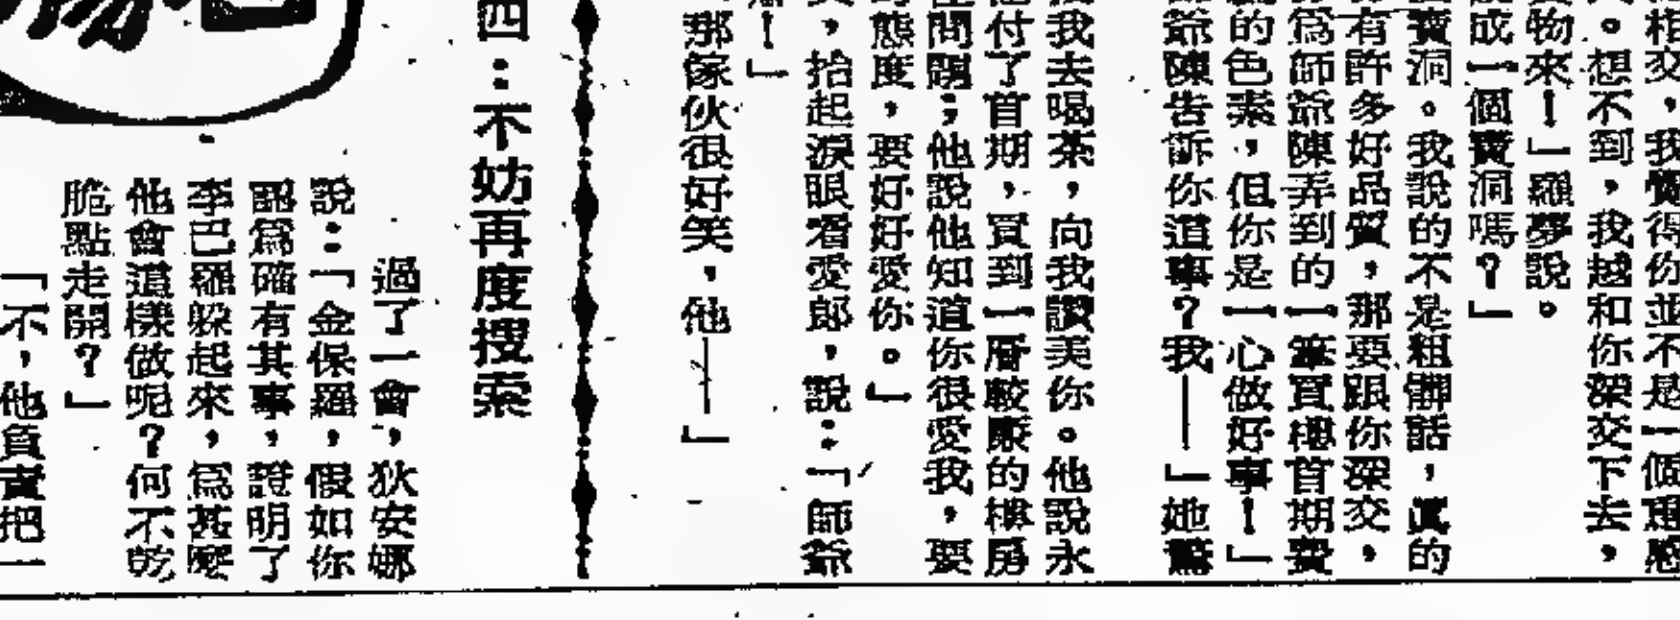 相交，我覺得你並不是一個
。想不到，我越和你深交下去，
物來！」羅夢說。
成一個寶洞嗎？」
寶洞。我說的不是粗髀話，真的
有許多好品質，那要跟你深交，
為師爺陳弄到的一筆買樓首期費
的色素，但你是一心做好事！」
爺陳告訴你這事？我——」她驚
我去喝茶，向我讚美你。他說永
付了首期，買到一層較廉的樓房
問題；他說他知道你很愛我，要
態度，要好好愛你。」
，抬起淚眼看愛郎，說：「師爺
！」
那傢伙很好笑，他——」
四：不妨再度搜索
過了一會，狄安娜
說：「金保羅，假如你
認為確有其事，證明了
李巴羅躲起來，為甚麼
他會這樣做呢？何不乾
脆點走開？」
「不，他負責把一